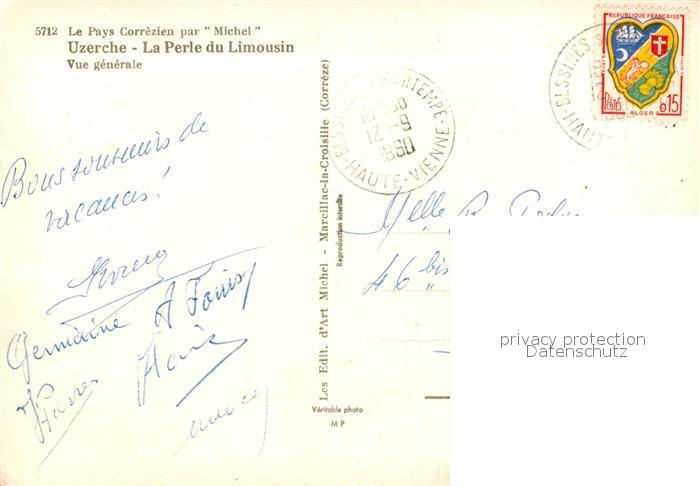 5712 Le Pays Corrèzien par " Michel "
Uzerche - La Perle du Limousin
Vue générale
Bons souvenirs de
vacances !
Germaine
Pierre
Les Edit. d'Art Michel - Marcillac-la-Croisille (Corrèze)
Reproduction interdite
Véritable photo
M P
12 -9
1960
HAUTE-VIENNE
REPUBLIQUE FRANÇAISE
POSTES
0,15
ALGER
BESSINES-S
HAUTE
Melle
46 bis
privacy protection
Datenschutz